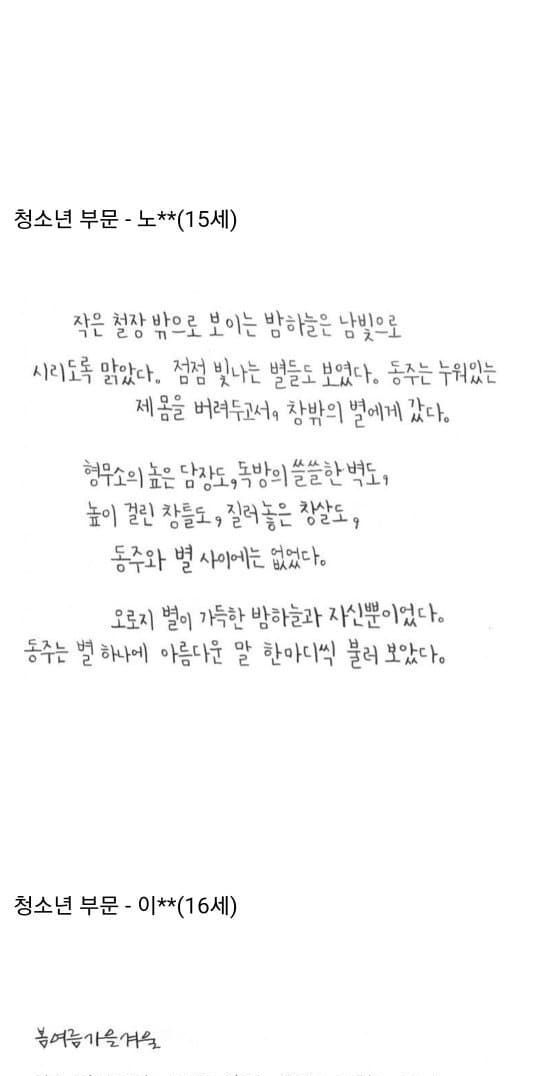 청소년 부문 - 노**(15세)
작은 철장 밖으로 보이는 밤하늘은 남빛으로
시리도록 맑았다. 점점 빛나는 별들도 보였다. 동주는 누워있는
제 몸을 버려두고서, 창밖의 별에게 갔다.
형무소의 높은 담장도, 독방의 쓸쓸한 벽도,
높이 걸린 창틀도, 질러놓은 창살도,
동주와 별 사이에는 없었다.
오로지 별이 가득한 밤하늘과 자신뿐이었다.
동주는 별 하나에 아름다운 말 한마디씩 불러 보았다.
청소년 부문 - 이**(16세)
봄여름가을겨울